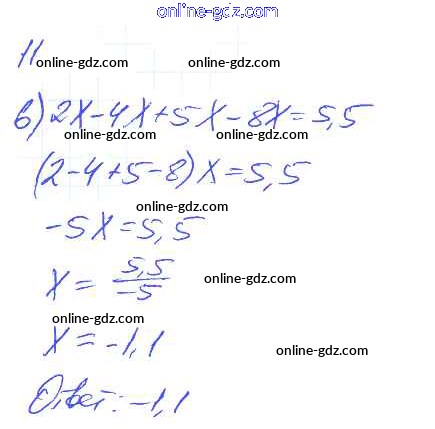 online-gdz.com
11
online-gdz.com online-gdz.com
в) 2x-4x+5x-8x=5,5
online-gdz.com online-gdz.com
(2-4+5-8)x=5,5
online-gdz.com
-5x=5,5
x = 5,5/-5
online-gdz.com
online-gdz.com
x = -1,1
online-gdz.com
Ответ: -1,1